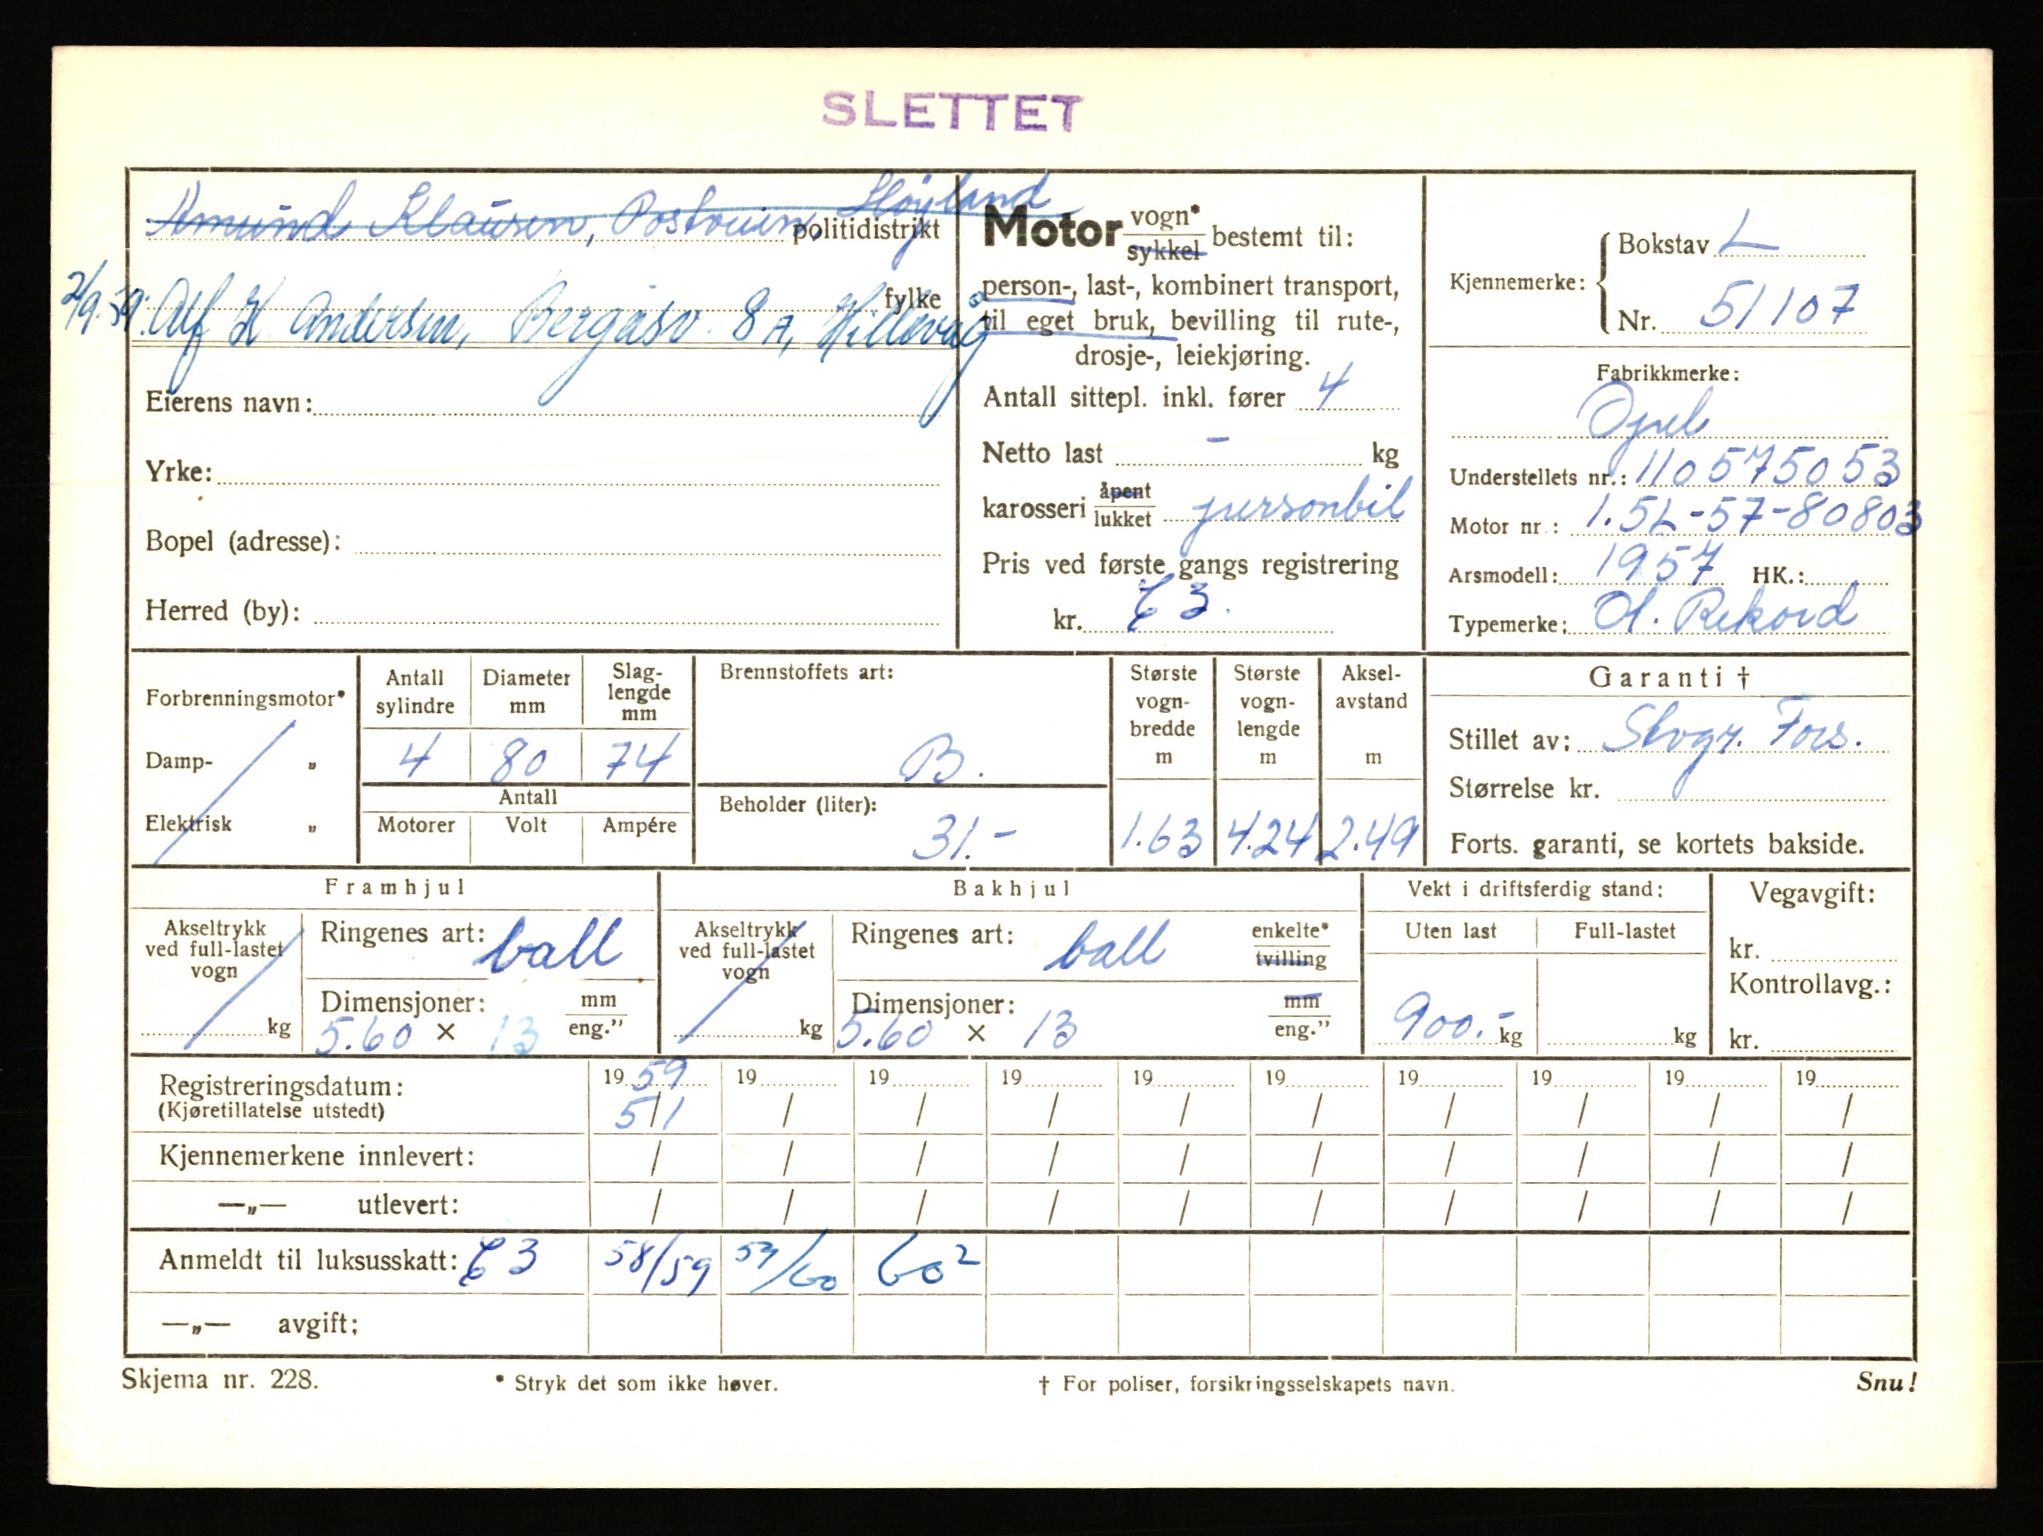 SLETTET
Amund Klausen, Postruin, Høyland
politidistrikt
2/9.59. Alf H Andersen, Bergåsv. 8 A, Hillevåg
fylke
Eierens navn:
Yrke:
Bopel (adresse):
Herred (by):
Motor vogn* sykkel bestemt til:
person-, last-, kombinert transport,
til eget bruk, bevilling til rute-,
drosje-, leiekjøring.
Antall sittepl. inkl. fører 4
Netto last - kg
karosseri åpent lukket personbil
Pris ved første gangs registrering
kr. E 3.
Kjennemerke: Bokstav L
Nr. 51107
Fabrikkmerke:
Opel
Understellets nr.: 110575053
Motor nr.: 1.5L-57-80803
Arsmodell: 1957 HK.:
Typemerke: Ol. Rekord
Forbrenningsmotor*
Damp- „
Elektrisk „
Antall sylindre Diameter mm Slag-lengde mm
4 80 74
Antall
Motorer Volt Ampére
Brennstoffets art:
B.
Beholder (liter):
31.-
Største vogn-bredde m Største vogn-lengde m Aksel-avstand m
1.63 4.24 2.49
Garanti †
Stillet av: Skogr. Fors.
Størrelse kr.
Forts. garanti, se kortets bakside.
Framhjul
Akseltrykk ved full-lastet vogn
kg
Ringenes art: ball
Dimensjoner: mm eng.”
5.60 × 13
Bakhjul
Akseltrykk ved full-lastet vogn
kg
Ringenes art: ball enkelte* tvilling
Dimensjoner: mm eng.”
5.60 × 13
Vekt i driftsferdig stand:
Uten last Full-lastet
900.- kg kg
Vegavgift:
kr.
Kontrollavg.:
kr.
Registreringsdatum: 1959 19 19 19 19 19 19 19 19 19
(Kjøretillatelse utstedt) 5/1 / / / / / / / / /
Kjennemerkene innlevert: / / / / / / / / / /
—„— utlevert: / / / / / / / / / /
Anmeldt til luksusskatt: E 3 58/59 59/60 60²
—„— avgift:
Skjema nr. 228. * Stryk det som ikke høver. † For poliser, forsikringsselskapets navn. Snu!